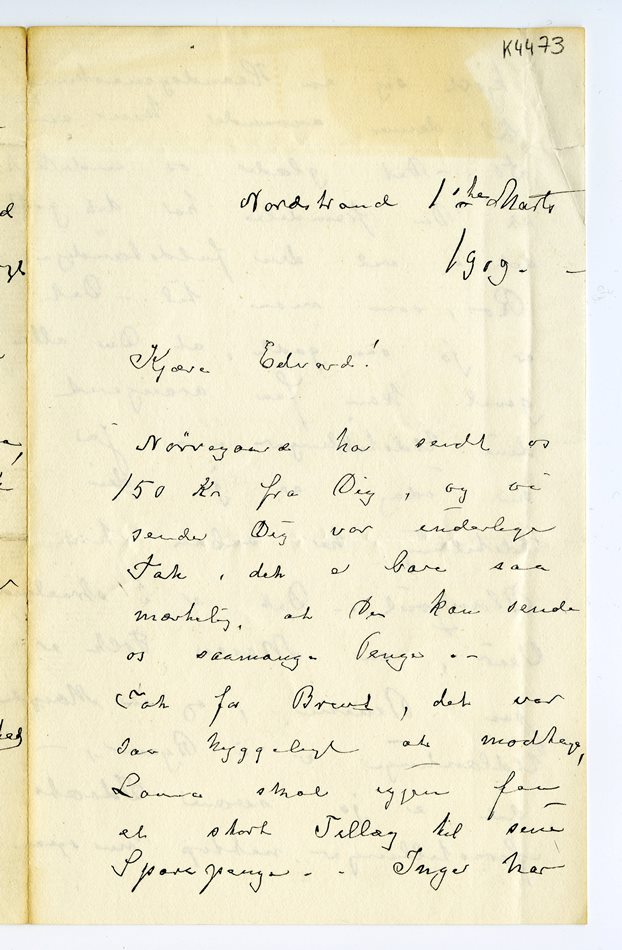 K4473
Nordstrand 1ste Marts
1909. -
Kjære Edvard!
Nörregaard har sendt os
150 Kr fra Dig, og vi
sender Dig vor inderlige
Tak, det er bare saa
mærkelig, at Du kan sende
os saamange Penge. -
Tak for Brevet, det var
saa hyggeligt at modtage,
Laura skal igjen faa
et stort Tillæg til sine
Sparepenge. - Inger har